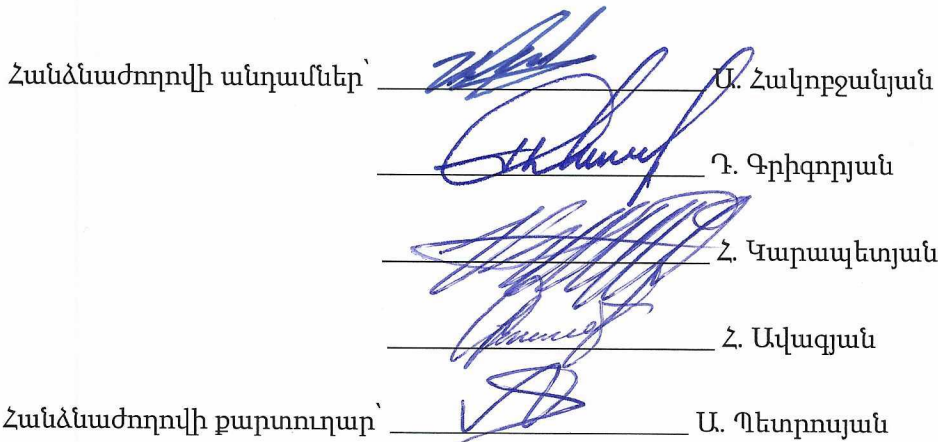 Հանձնաժողովի անդամներ՝ Ա. Հակոբջանյան
Դ. Գրիգորյան
Հ. Կարապետյան
Հ. Ավագյան
Հանձնաժողովի քարտուղար՝ Ա. Պետրոսյան